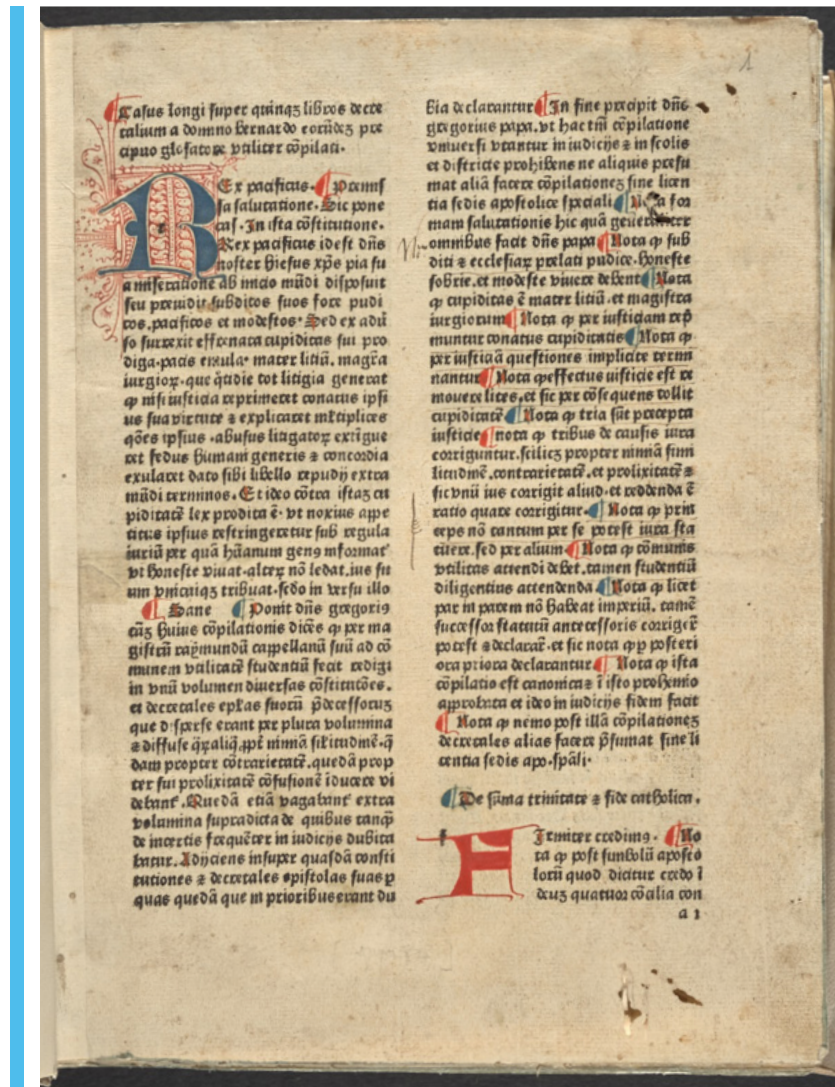 1
¶Casus longi super quinqꝫ libros decre
talium a domno bernardo eorūdeꝫ pre
cipuo glosatore vtiliter cōpilati·
REx pacificus· ¶Premis
sa salutatione. Sic pone
cas̄. In ista cōstitutione.
Rex pacificus id est dn̄s
noster hiesus xp̄s pia su
a miseratione ab inicio mūdi disposuit
seu preuidit subditos suos fore pudi
cos.pacificos et modestos· Sed ex aduer
so surrexit effrenata cupiditas sui pro
diga·pacis emula· mater litiū. magr̄a
iurgioꝝ·que q̄tidie tot litigia generat
ꝙ nisi iusticia reprimeret conatus ipsi
us sua virtute ⁊ explicaret mĺtiplices
q̄ōes ipsius ·abusus litigatoꝝ extīgue
ret fedus humani generis ⁊ concordia
exularet dato sibi libello repudij extra
mūdi terminos. Et ideo cōtra istaꝫ cu
piditatē lex prodita ē· vt noxius appe
titus ipsius restringeretur sub regula
iuris per quā hūanum genꝰ informat᷑
vt honeste viuat·alteꝝ nō ledat.ius su
um vnicuiqꝫ tribuat·sedo in versu illo
¶Sane ¶Ponit dn̄s gregoriꝰ
cāꝫ huius cōpilationis dicēs ꝙ per ma
gistrū raymundū cappellanū suū ad cō
munem vtilitatē studentiū fecit redigi
in vnū volumen diuersas cōstitutōes.
et decretales ep̄las suorū p̄decessoruꝫ
que disperse erant per plura volumina
⁊ diffuse q̄ꝝ aliq̄ ꝓpt̄ nimiā sil̄itudinē·q̄
dam propter cōtrarietatē.quedā prop
ter sui prolixitatē cōfusionē īducere vi
debant᷑. Quedā etiā vagabant᷑ extra
volumina supradicta de quibus tanq̄
de incertis frequēter in iudicijs dubita
batur. Adijciens insuper quasdā consti
tutiones ⁊ decretales epistolas suas ꝑ
quas quedā que in prioribus erant du
bia declarantur ¶In fine precipit dn̄s
gregorius papa.vt hac tm̄ cōpilatione
vniuersi vtantur in iudicijs ⁊ in scolis
et districte prohibens ne aliquis presu
mat aliā facere cōpilationeꝫ sine licen
tia sedis apostolice speciali ¶Nota for
mam salutationis hic quā generaliter
omnibus facit dn̄s papa ¶Nota ꝙ sub
diti ⁊ ecclesiaꝝ prelati pudice·honeste
sobrie.et modeste viuere debent ¶Nota
ꝙ cupiditas ē mater litiū·et magistra
iurgiorum ¶Nota ꝙ per iusticiam repri
muntur conatus cupiditatis ¶Nota ꝙ
per iusticiā questiones implicite termi
nantur ¶Nota ꝙ effectus iusticie est re
mouere lites.et sic per cōsequens tollit
cupiditatē ¶Nota ꝙ tria sūt precepta
iusticie ¶nota ꝙ tribus de causis iura
corriguntur.scilicꝫ propter nimiā simi
litudinē.contrarietatē.et prolixitatē ⁊
sic vnū ius corrigit aliud·et reddenda ē
ratio quare corrigitur· ¶Nota ꝙ prin
ceps nō tantum per se potest iura sta
tuere.sed per alium ¶Nota ꝙ cōmunis
vtilitas attendi debet.tamen studentiū
diligentius attendenda ¶Nota ꝙ licet
par in parem nō habeat imperiū. tamē
successor statutū antecessoris corrigeř
potest ⁊ declarař. et sic nota ꝙ ꝑ posteri
ora priora declarantur ¶Nota ꝙ ista
cōpilatio est canonica ⁊ ī isto prohemio
approbata et ideo in iudicijs fidem facit
¶Nota ꝙ nemo post illā cōpilationeꝫ
decretales alias facere p̄sumat sine li
centia sedis apo·sp̄ali·
¶De sūma trinitate ⁊ fide catholica.
FIrmiter credimꝰ. ¶No
ta ꝙ post simbolū aposto
lorū quod dicitur credo ī
deuꝫ quatuor cōcilia con
a 1